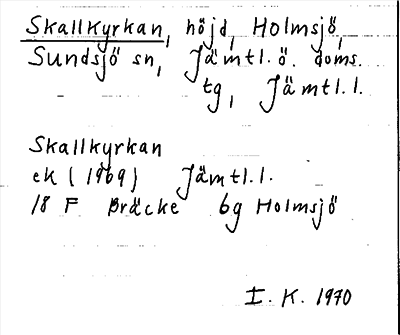 Skallkyrkan, höjd, Holmsjö,
Sundsjö sn, Jämtl. ö. doms.
tg, Jämtl. l.
Skallkyrkan
ek (1969) Jämtl. l.
18 F Bräcke 6g Holmsjö
I. K. 1970